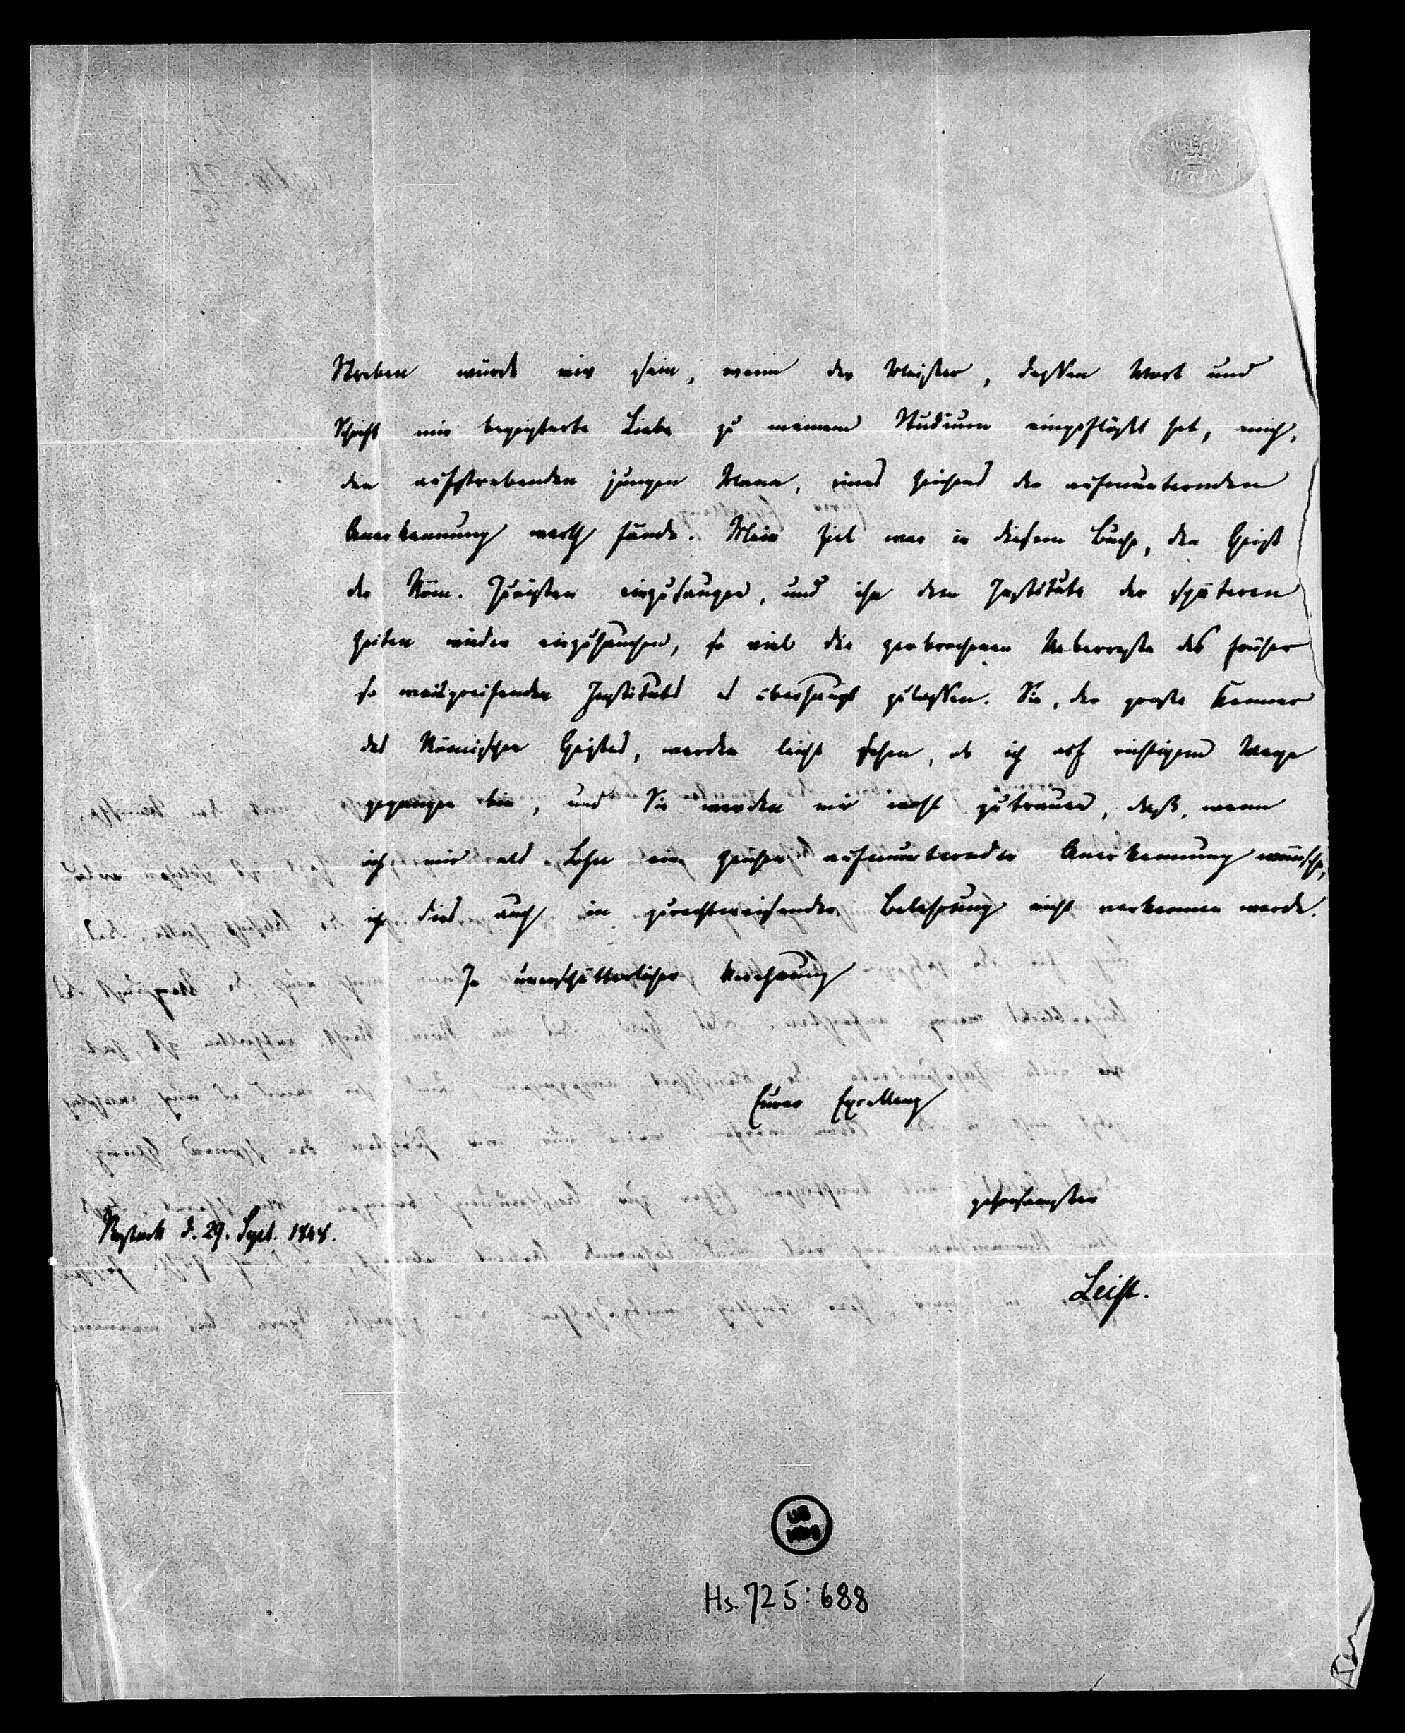 Streben würde mir sein, wenn der Meister, dessen Wort und
Schrift mir begeisterte Liebe zu meinem Studium eingeflößt hat, mich,
den aufstrebenden jungen Mann, eines Zeichens der aufmunternden
Anerkennung werth fände. Mein Ziel war in diesem Buche, den Geist
der Röm. Juristen einzusaugen, und ihn dem Institute der späteren
Zeiten wieder einzuhauchen, so viel die zerbrochenen Ueberreste des früher
so weitgreifenden Instituts es überhaupt zulassen. Sie, der große Kenner
des Römischen Geistes, werden leicht sehen, ob ich auf richtigem Wege
gegangen bin, und Sie werden mir wohl zutrauen, daß, wenn
ich mir als Lohn ein Zeichen aufmunternder Anerkennung wünsche,
ich dies auch in zurechtweisender Belehrung nicht verkennen werde.
In unerschütterlicher Verehrung
Eurer Excellenz
gehorsamster
Rostock d. 29. Sept. 1848.
Leist.
UB
Hs. 725:688